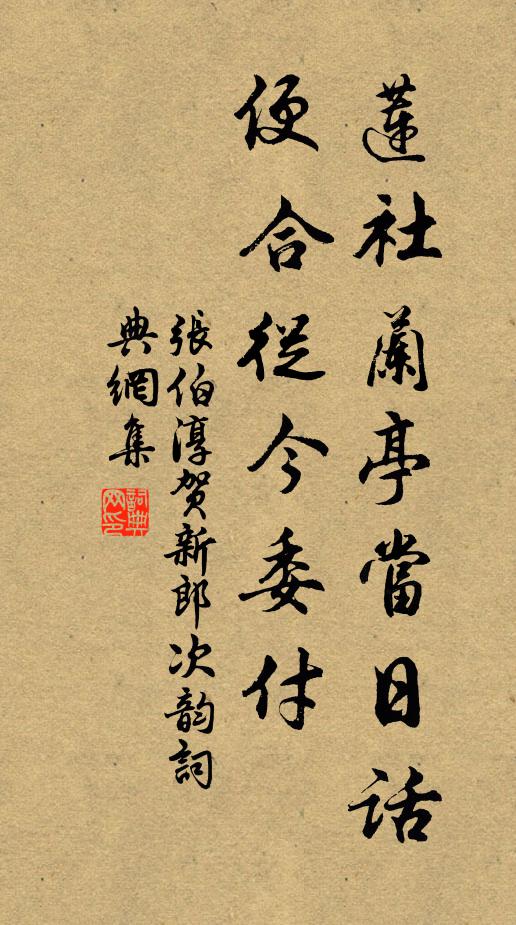 蓮社蘭亭當日話
便合從今委付
張伯淳賀新郎次韵詞
典網集
詞典網印